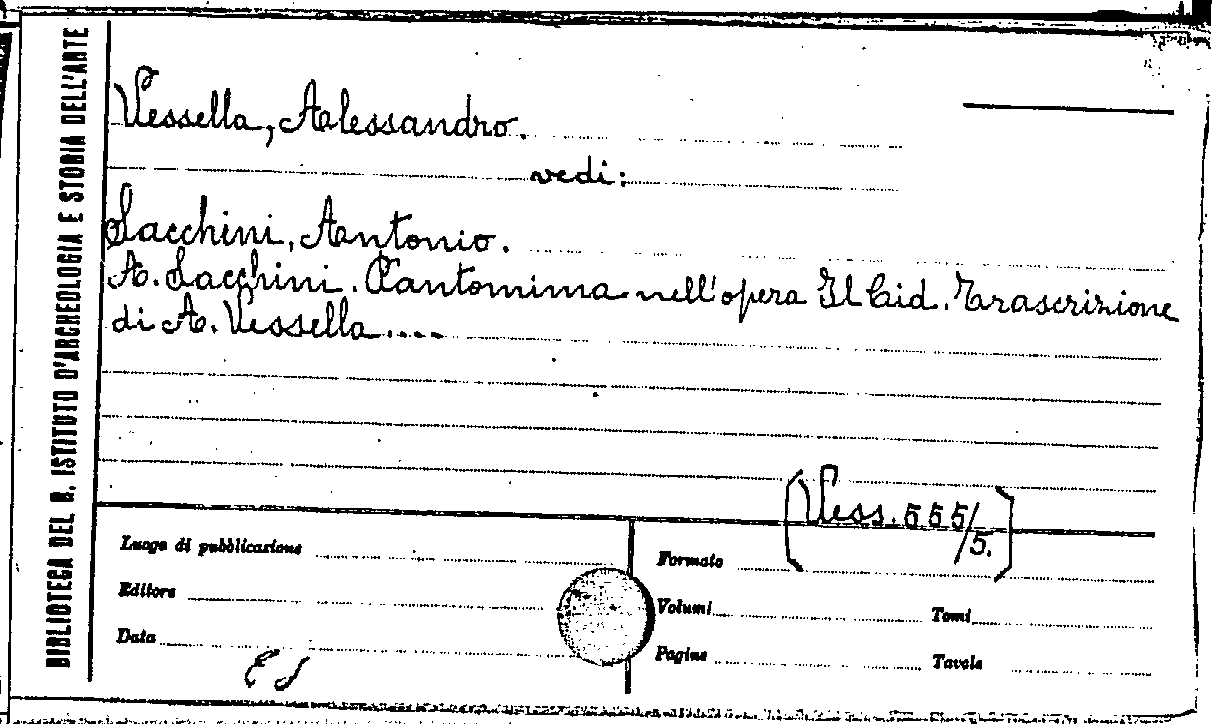 BIBLIOTECA DEL R. ISTITUTO D'ARCHEOLOGIA E STORIA DELL'ARTE
Vessella, Alessandro.
vedi:
Sacchini, Antonio.
A. Sacchini. Pantomima nell'opera Il Cid. Trascrizione
di A. Vessella....
(Vess. 555/5.)
Luogo di pubblicazione
Editore
Data
Formato
Volumi Tomi
Pagine Tavole